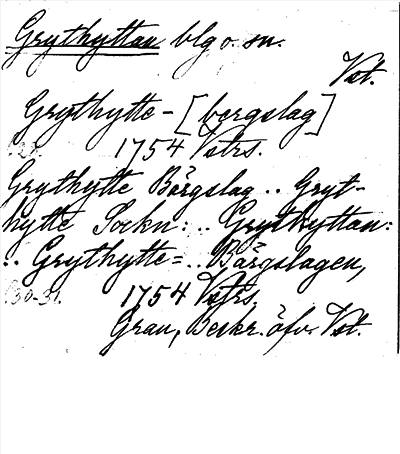 Grythyttan blg o. sn.
Vst.
Grythytte-[bergslag]
s. 28. 1754 Vstrs.
Grythytte Bärgslag .. Gryt-
hytte Sockn: .. Grythyttan:
.. Grythytte= .. Bärgslagen,
s. 30-31. 1754 Vstrs.
Grau, Beskr. öfv. Vst.